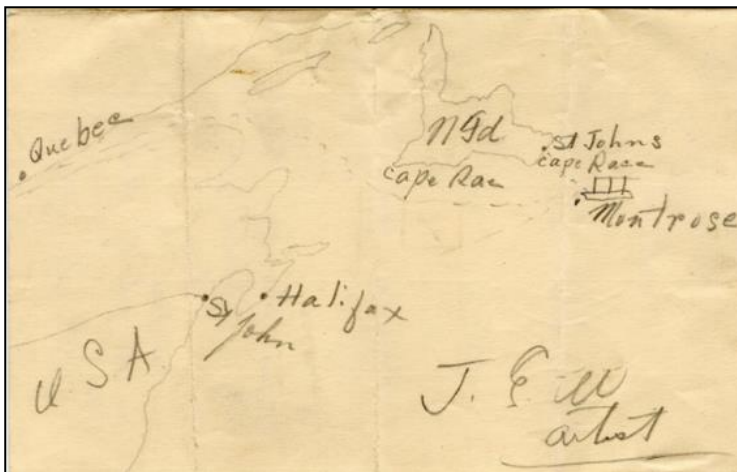 Quebec
Nfd
St Johns
Cape Race
Cape Rae
Montrose
Halifax
St John
U.S.A.
J. E. W
artist